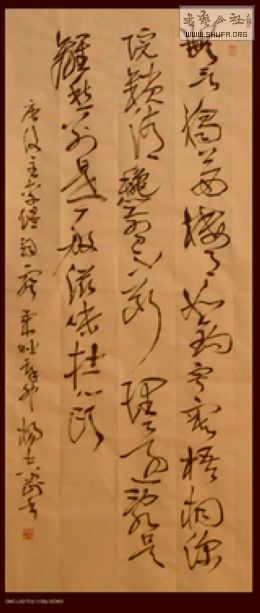 書藝公社
WWW.SHUFA.ORG
無言獨上西樓月如鉤寂寞梧桐深
院鎖清秋剪不斷理還亂是
離愁別是一般滋味在心頭
唐後主李煜詞